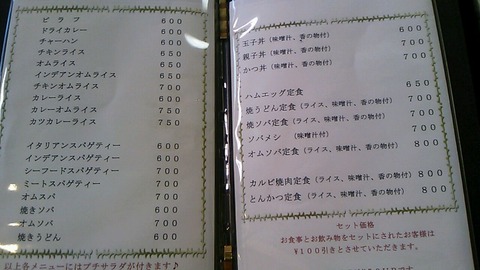 ピラフ 600
ドライカレー 600
チャーハン 600
チキンライス 650
オムライス 650
インデアンオムライス 650
チキンオムライス 700
カレーライス 600
カレーオムライス 750
カツカレーライス 750
イタリアンスパゲティー 600
インデアンスパゲティー 600
シーフードスパゲティー 700
ミートスパゲティー 700
オムスパ 700
焼きソバ 600
オムソバ 700
焼きうどん 600
以上各メニューにはプチサラダが付きます♪
玉子丼(味噌汁、香の物付) 600
親子丼(味噌汁、香の物付) 700
かつ丼(味噌汁、香の物付) 700
ハムエッグ定食 650
焼うどん定食(ライス、味噌汁、香の物付) 700
焼ソバ定食(ライス、味噌汁、香の物付) 700
ソバメシ (味噌汁付) 700
オムソバ定食(ライス、味噌汁、香の物付) 800
カルビ焼肉定食(ライス、味噌汁、香の物付) 800
とんかつ定食(ライス、味噌汁、香の物付) 800
セット価格
お食事とお飲み物をセットにされたお客様は
¥100引きとさせていただきます。